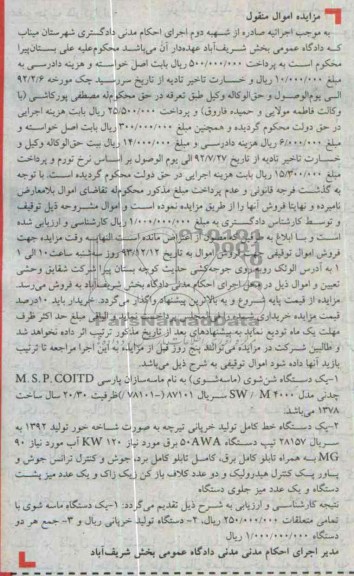 مزایده اموال منقول
به موجب اجرائیه صادره از شعبه دوم اجرای احکام مدنی دادگستری شهرستان میناب
که دادگاه عمومی بخش شریف‌آباد عهده‌دار آن می‌باشد محکوم‌علیه علی بستان‌پیرا
محکوم است به پرداخت ۵۰۰/۰۰۰/۰۰۰ ریال بابت اصل خواسته و هزینه دادرسی به
مبلغ ۱۰/۰۰۰/۰۰۰ ریال و خسارت تاخیر تادیه از تاریخ سررسید چک مورخه ۹۲/۲/۶
الی یوم‌الوصول و حق‌الوکاله وکیل طبق تعرفه در حق محکوم‌له مصطفی پورکاشی (با
وکالت فاطمه مولایی و حمیده فاروق) و پرداخت ۲۵/۵۰۰/۰۰۰ ریال بابت هزینه اجرایی
در حق دولت محکوم گردیده و همچنین مبلغ ۳۰۰/۰۰۰/۰۰۰ ریال بابت اصل خواسته و
مبلغ ۶/۰۰۰/۰۰۰ ریال هزینه دادرسی و مبلغ ۱۴/۰۰۰/۰۰۰ ریال بیت حق‌الوکاله وکیل و
خسارت تاخیر تادیه از تاریخ ۹۲/۷/۲۷ الی یوم الوصول بر اساس نرخ تورم و پرداخت
مبلغ ۱۵/۳۰۰/۰۰۰ ریال بابت هزینه اجرایی در حق دولت محکوم گردیده است. با توجه
به گذشت فرجه قانونی و عدم پرداخت مبلغ مذکور محکوم‌له تقاضای اموال بلامعارض
نامبرده و نهایتا فروش آنها را از طریق مزایده نموده است و اموال مشروحه ذیل توقیف
و توسط کارشناس دادگستری به مبلغ ۱/۰۰۰/۰۰۰/۰۰۰ ریال کارشناسی و ارزیابی شده
است و با ابلاغ به طرفین مصون از اعتراض مانده است النهایه وقت مزایده جهت
فروش اموال توقیفی فروش اموال به تاریخ ۹۳/۱۲/۱۲ روز سه‌شنبه ساعت ۱۰ الی ۱
به آدرس الونک روبروی جوجه‌کشی حدیث کوچه بستان پیرا شرکت شقایق وحشی
تعیین و اموال ذیل در محل اجرای احکام مدنی دادگاه بخش شریف‌آباد به فروش می‌رسد.
مزایده از قیمت پایه شروع و به بالاترین پیشنهاد واگذار می‌گردد. خریدار باید ۱۰درصد
قیمت مزایده خریداری شده را فی‌المجلس پرداخت نماید و الباقی مبلغ حد اکثر ظرف
مهلت یک ماه تودیع نماید به پیشنهادهای بعد از تاریخ مذکور ترتیب اثر داده نخواهد شد
و طالبین شرکت در مزایده می‌توانند پنج روز قبل از مزایده به این اجرا مراجعه تا ترتیب
بازید آنها داده شود اموال توقیفی به شرح ذیل می‌باشد.
۱-یک دستگاه شن‌شوی (ماسه‌شوی) به نام ماسه‌سازان پارسی M.S.P.COITD
چدنی مدل SW / M ۴۰۰۰ سریال ۸۷۱۰۱ (۷۸۱۰۱-)ظرفیت ۲۰/۳۰ سال ساخت
۱۳۷۸ می‌باشد.
۲-یک دستگاه خط کامل تولید خرپانی تیرچه به صورت شاخه خور تولید ۱۳۹۲ به
سریال ۲۸۱۵۷ تیپ دستگاه ۵۰AWA برق مورد نیاز ۱۲۰ KW آب مورد نیاز ۹۰
MG به همراه تابلو کامل برق، کامل تابلو کامل برد جوش و کنترل ترانس جوش و
پاور پک کنترل هیدرولیک و دو عدد کلاف باز کن زیک زاک و یک عدد میز پشت
دستگاه و یک عدد میز جلوی دستگاه
نتیجه کارشناسی و ارزیابی به شرح ذیل تقدیم می‌گردد: ۱-یک دستگاه ماسه شوی با
تمامی متعلقات ۲۵۰/۰۰۰/۰۰۰ ریال، ۲- دستگاه تولید خرپانی ریال و ۳- جمع هر دو
دستگاه ۱/۰۰۰/۰۰۰/۰۰۰ ریال
مدیر اجرای احکام مدنی مدنی دادگاه عمومی بخش شریف‌آباد